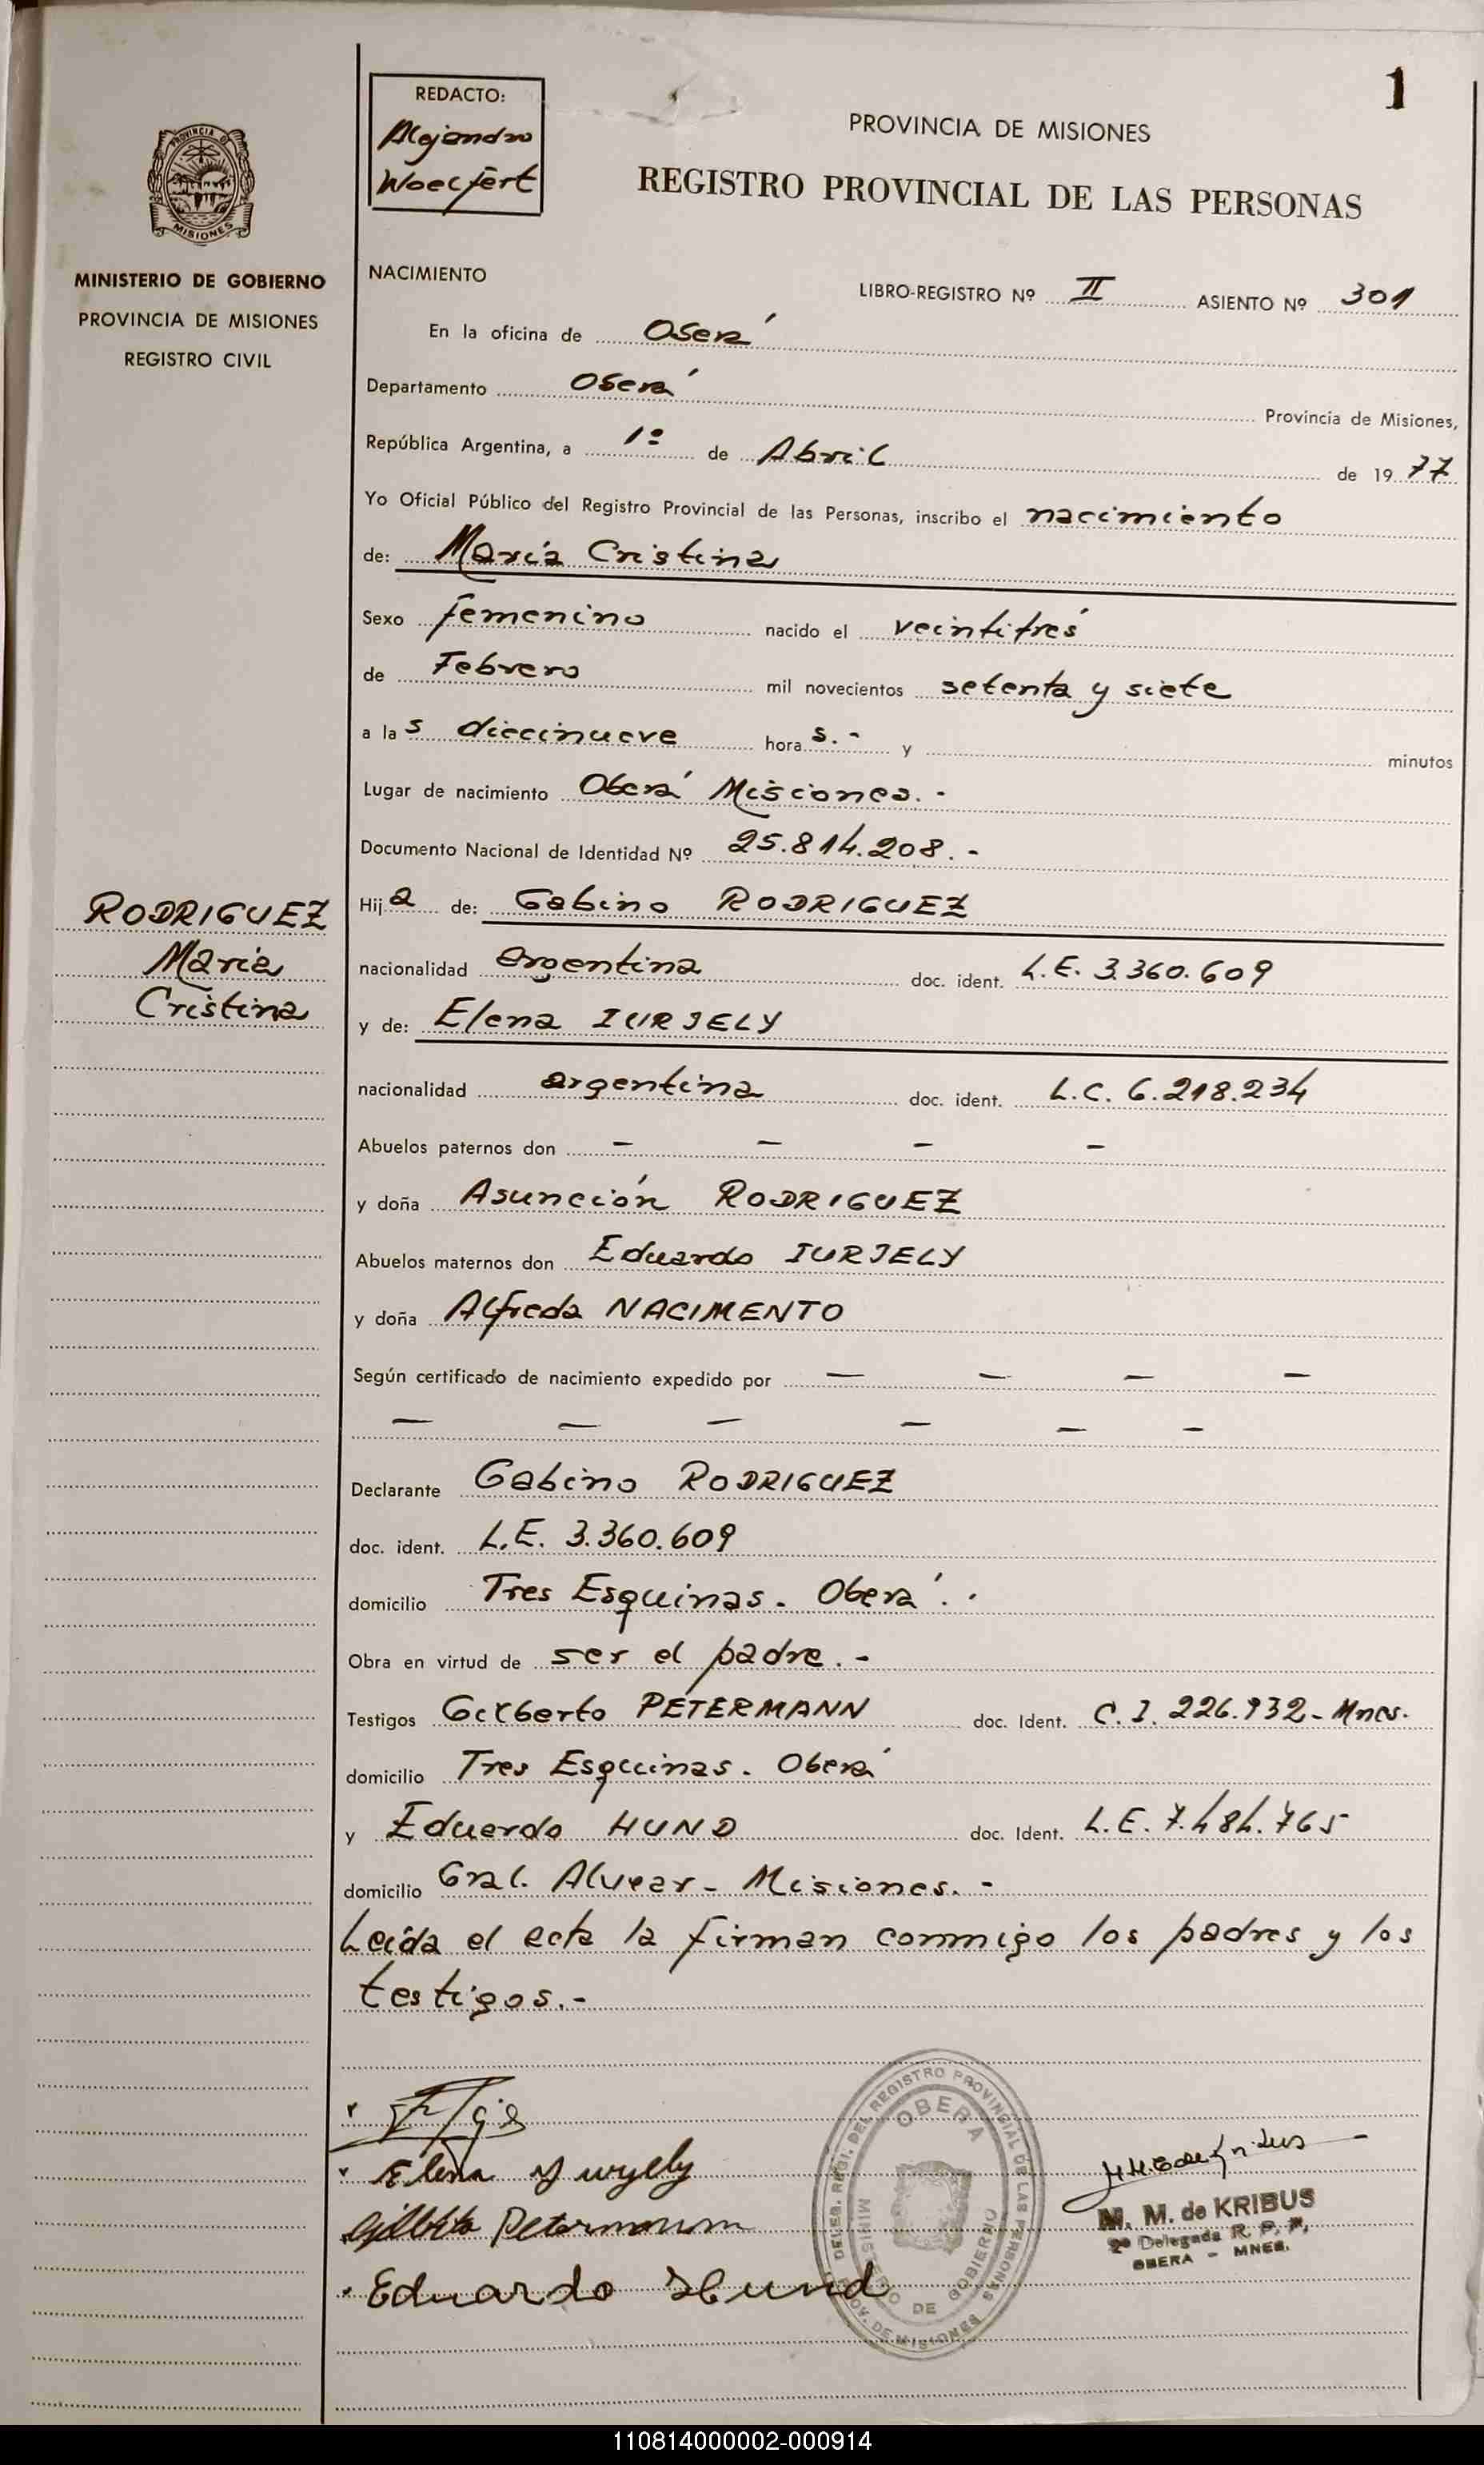 1
REDACTO:
Alejandro
Woelfert
PROVINCIA DE MISIONES
REGISTRO PROVINCIAL DE LAS PERSONAS
PROVINCIA DE
MISIONES
MINISTERIO DE GOBIERNO
PROVINCIA DE MISIONES
REGISTRO CIVIL
NACIMIENTO
LIBRO-REGISTRO Nº II ASIENTO Nº 301
En la oficina de Oberá
Departamento Oberá Provincia de Misiones,
República Argentina, a 1º de Abril de 1977
Yo Oficial Público del Registro Provincial de las Personas, inscribo el nacimiento
de: María Cristina
Sexo femenino nacido el veintitrés
de Febrero mil novecientos setenta y siete
a las diecinueve horas.- y minutos
Lugar de nacimiento Oberá Misiones.-
Documento Nacional de Identidad Nº 25.814.208.-
RODRIGUEZ
María
Cristina
Hija de: Gabino RODRIGUEZ
nacionalidad argentina doc. ident. L.E. 3.360.609
y de: Elena IURJELY
nacionalidad argentina doc. ident. L.C. 6.218.234
Abuelos paternos don — — — —
y doña Asunción RODRIGUEZ
Abuelos maternos don Eduardo IURJELY
y doña Alfreda NACIMENTO
Según certificado de nacimiento expedido por — — — —
— — — — — —
Declarante Gabino RODRIGUEZ
doc. ident. L.E. 3.360.609
domicilio Tres Esquinas. Oberá.
Obra en virtud de ser el padre.-
Testigos Gilberto PETERMANN doc. Ident. C.I. 226.932- Mnes.
domicilio Tres Esquinas. Oberá
y Eduardo HUND doc. Ident. L.E. 7.484.765
domicilio Gral. Alvear- Misiones.-
Leída el acta la firman conmigo los padres y los
testigos.-
Elena
Gilberto Petermann
Eduardo Hund
DELEG. REGI. DEL REGISTRO PROVINCIAL DE LAS PERSONAS
OBERA
MINISTERIO DE GOBIERNO
PROV. DE MISIONES
M. M. de KRIBUS
2º Delegada R. P. P.
OBERA - MNES.
110814000002-000914